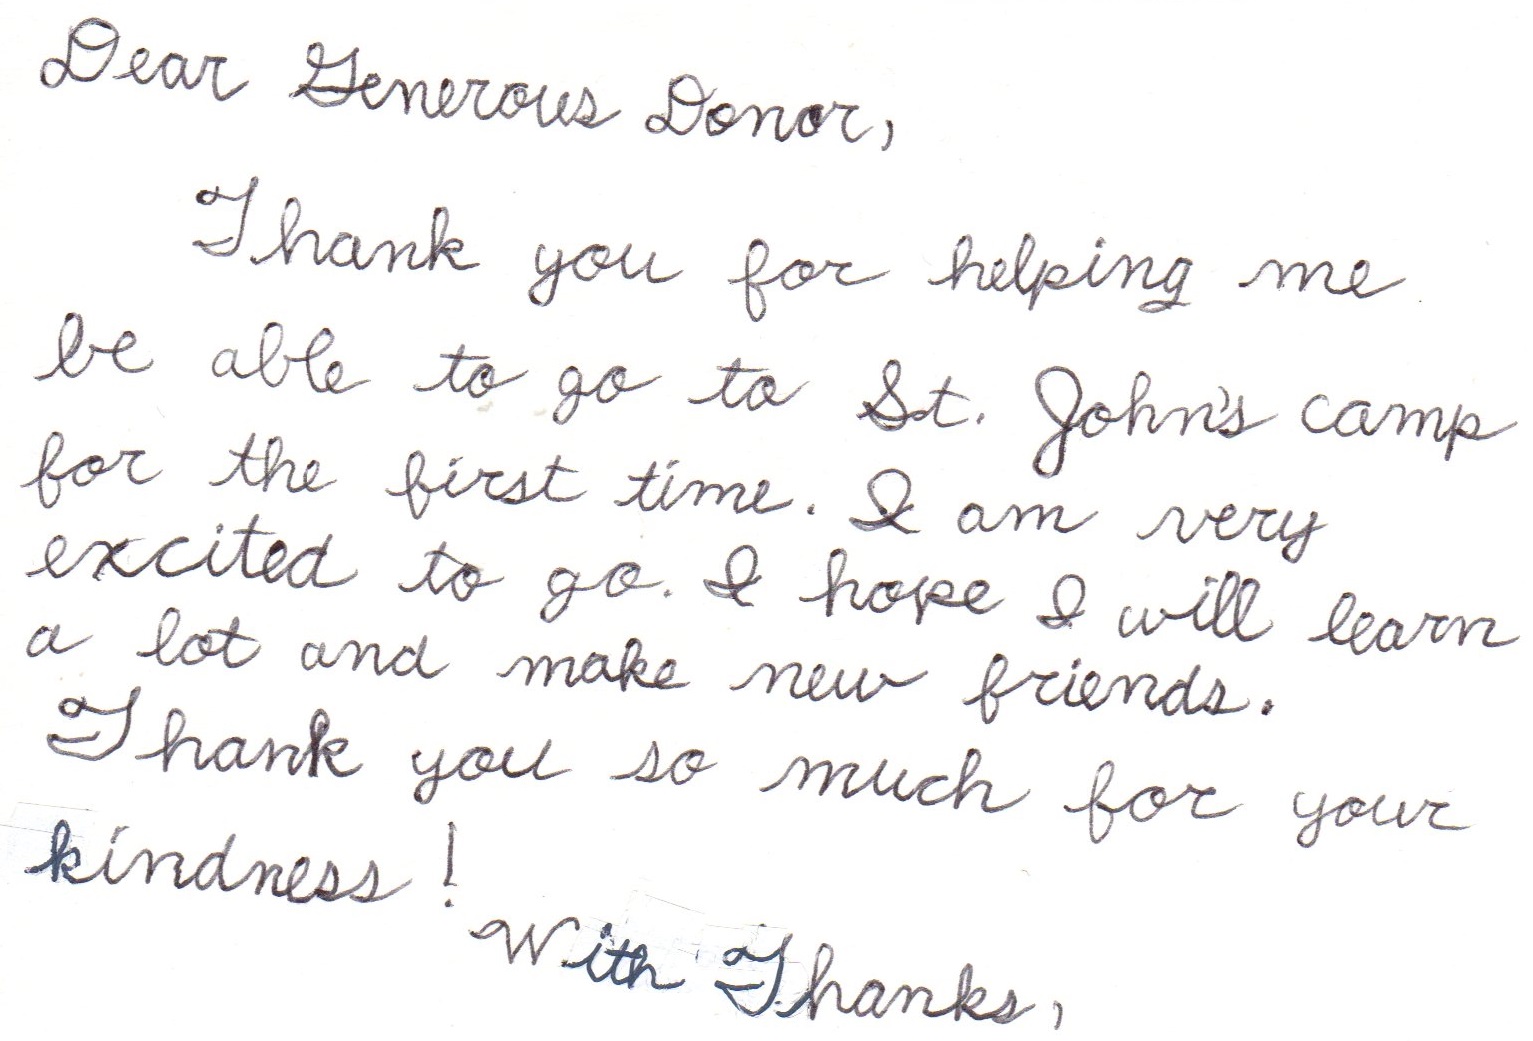 Dear Generous Donor,
Thank you for helping me
be able to go to St. John's camp
for the first time. I am very
excited to go. I hope I will learn
a lot and make new friends.
Thank you so much for your
kindness!
With Thanks,